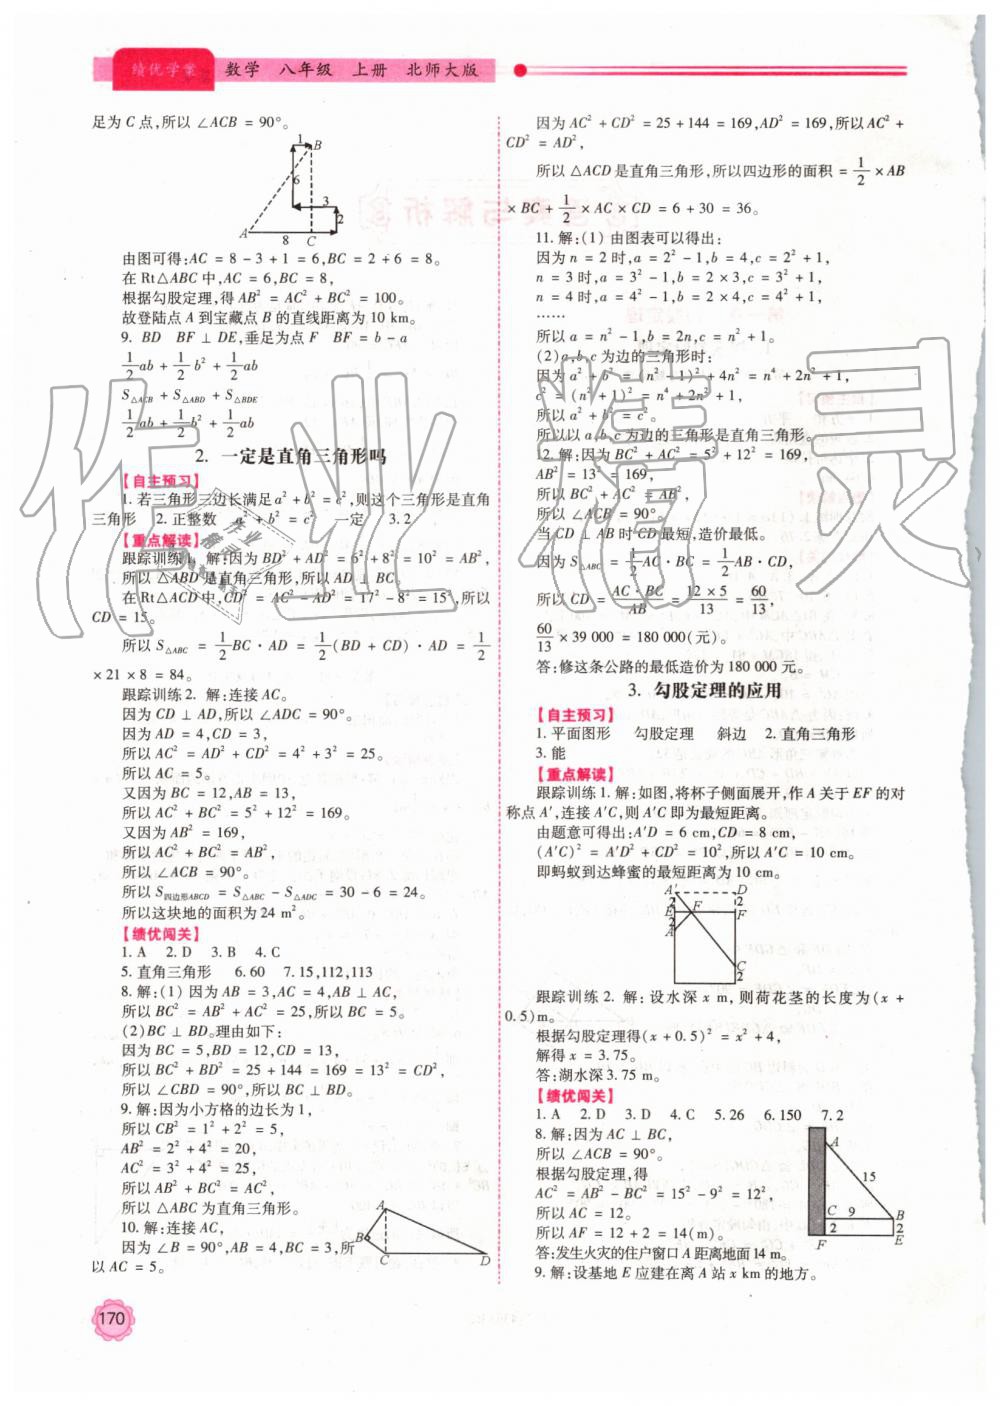 绩优学案 数学 八年级 上册 北师大版
足为 C 点,所以 ∠ACB = 90°。
1 B
6
3
2
A 8 C
由图可得:AC = 8 - 3 + 1 = 6,BC = 2 + 6 = 8。
在 Rt△ABC 中,AC = 6,BC = 8,
根据勾股定理,得 AB² = AC² + BC² = 100。
故登陆点 A 到宝藏点 B 的直线距离为 10 km。
9. BD BF ⊥ DE,垂足为点 F BF = b - a
1/2 ab + 1/2 b² + 1/2 ab
S△ACB + S△ABD + S△BDE
1/2 ab + 1/2 b² + 1/2 ab
2. 一定是直角三角形吗
【自主预习】
1. 若三角形三边长满足 a² + b² = c²,则这个三角形是直角
三角形 2. 正整数 a² + b² = c² 一定 3. 2
【重点解读】
跟踪训练 1. 解:因为 BD² + AD² = 6² + 8² = 10² = AB²,
所以 △ABD 是直角三角形,所以 AD ⊥ BC。
在 Rt△ACD 中,CD² = AC² - AD² = 17² - 8² = 15²,所以
CD = 15。
所以 S△ABC = 1/2 BC · AD = 1/2 (BD + CD) · AD = 1/2
× 21 × 8 = 84。
跟踪训练 2. 解:连接 AC。
因为 CD ⊥ AD,所以 ∠ADC = 90°。
因为 AD = 4,CD = 3,
所以 AC² = AD² + CD² = 4² + 3² = 25。
所以 AC = 5。
又因为 BC = 12,AB = 13,
所以 AC² + BC² = 5² + 12² = 169。
又因为 AB² = 169,
所以 AC² + BC² = AB²,
所以 ∠ACB = 90°。
所以 S四边形ABCD = S△ABC - S△ADC = 30 - 6 = 24。
所以这块地的面积为 24 m²。
【绩优闯关】
1. A 2. D 3. B 4. C
5. 直角三角形 6. 60 7. 15,112,113
8. 解:(1) 因为 AB = 3,AC = 4,AB ⊥ AC,
所以 BC² = AB² + AC² = 25,所以 BC = 5。
(2)BC ⊥ BD。理由如下:
因为 BC = 5,BD = 12,CD = 13,
所以 BC² + BD² = 25 + 144 = 169 = 13² = CD²,
所以 ∠CBD = 90°,所以 BC ⊥ BD。
9. 解:因为小方格的边长为 1,
所以 CB² = 1² + 2² = 5,
AB² = 2² + 4² = 20,
AC² = 3² + 4² = 25,
所以 AB² + BC² = AC²,
所以 △ABC 为直角三角形。
10. 解:连接 AC,
因为 ∠B = 90°,AB = 4,BC = 3,所
以 AC = 5。
A
B
C D
170
因为 AC² + CD² = 25 + 144 = 169,AD² = 169,所以 AC² +
CD² = AD²,
所以 △ACD 是直角三角形,所以四边形的面积 = 1/2 × AB
× BC + 1/2 × AC × CD = 6 + 30 = 36。
11. 解:(1) 由图表可以得出:
因为 n = 2 时,a = 2² - 1,b = 4,c = 2² + 1,
n = 3 时,a = 3² - 1,b = 2 × 3,c = 3² + 1,
n = 4 时,a = 4² - 1,b = 2 × 4,c = 4² + 1,
……
所以 a = n² - 1,b = 2n,c = n² + 1。
(2)a,b,c 为边的三角形时:
因为 a² + b² = (n² - 1)² + 4n² = n⁴ + 2n² + 1,
c² = (n² + 1)² = n⁴ + 2n² + 1,
所以 a² + b² = c²。
所以以 a,b,c 为边的三角形是直角三角形。
12. 解:因为 BC² + AC² = 5² + 12² = 169,
AB² = 13² = 169,
所以 BC² + AC² = AB²,
所以 ∠ACB = 90°。
当 CD ⊥ AB 时 CD 最短,造价最低。
因为 S△ABC = 1/2 AC · BC = 1/2 AB · CD,
所以 CD = AC · BC/AB = 12 × 5/13 = 60/13,
60/13 × 39 000 = 180 000(元)。
答:修这条公路的最低造价为 180 000 元。
3. 勾股定理的应用
【自主预习】
1. 平面图形 勾股定理 斜边 2. 直角三角形
3. 能
【重点解读】
跟踪训练 1. 解:如图,将杯子侧面展开,作 A 关于 EF 的对
称点 A′,连接 A′C,则 A′C 即为最短距离。
由题意可得出:A′D = 6 cm,CD = 8 cm,
(A′C)² = A′D² + CD² = 10²,所以 A′C = 10 cm。
即蚂蚁到达蜂蜜的最短距离为 10 cm。
A′ D
2 2
E F F
2
A
C
2
跟踪训练 2. 解:设水深 x m,则荷花茎的长度为(x +
0.5)m。
根据勾股定理得(x + 0.5)² = x² + 4,
解得 x = 3.75。
答:湖水深 3.75 m。
【绩优闯关】
1. A 2. D 3. D 4. C 5. 26 6. 150 7. 2
8. 解:因为 AC ⊥ BC,
所以 ∠ACB = 90°。
根据勾股定理,得
AC² = AB² - BC² = 15² - 9² = 12²,
所以 AC = 12。
所以 AF = 12 + 2 = 14(m)。
答:发生火灾的住户窗口 A 距离地面 14 m。
A
15
C 9 B
2 2
F E
9. 解:设基地 E 应建在离 A 站 x km 的地方。
作业精灵